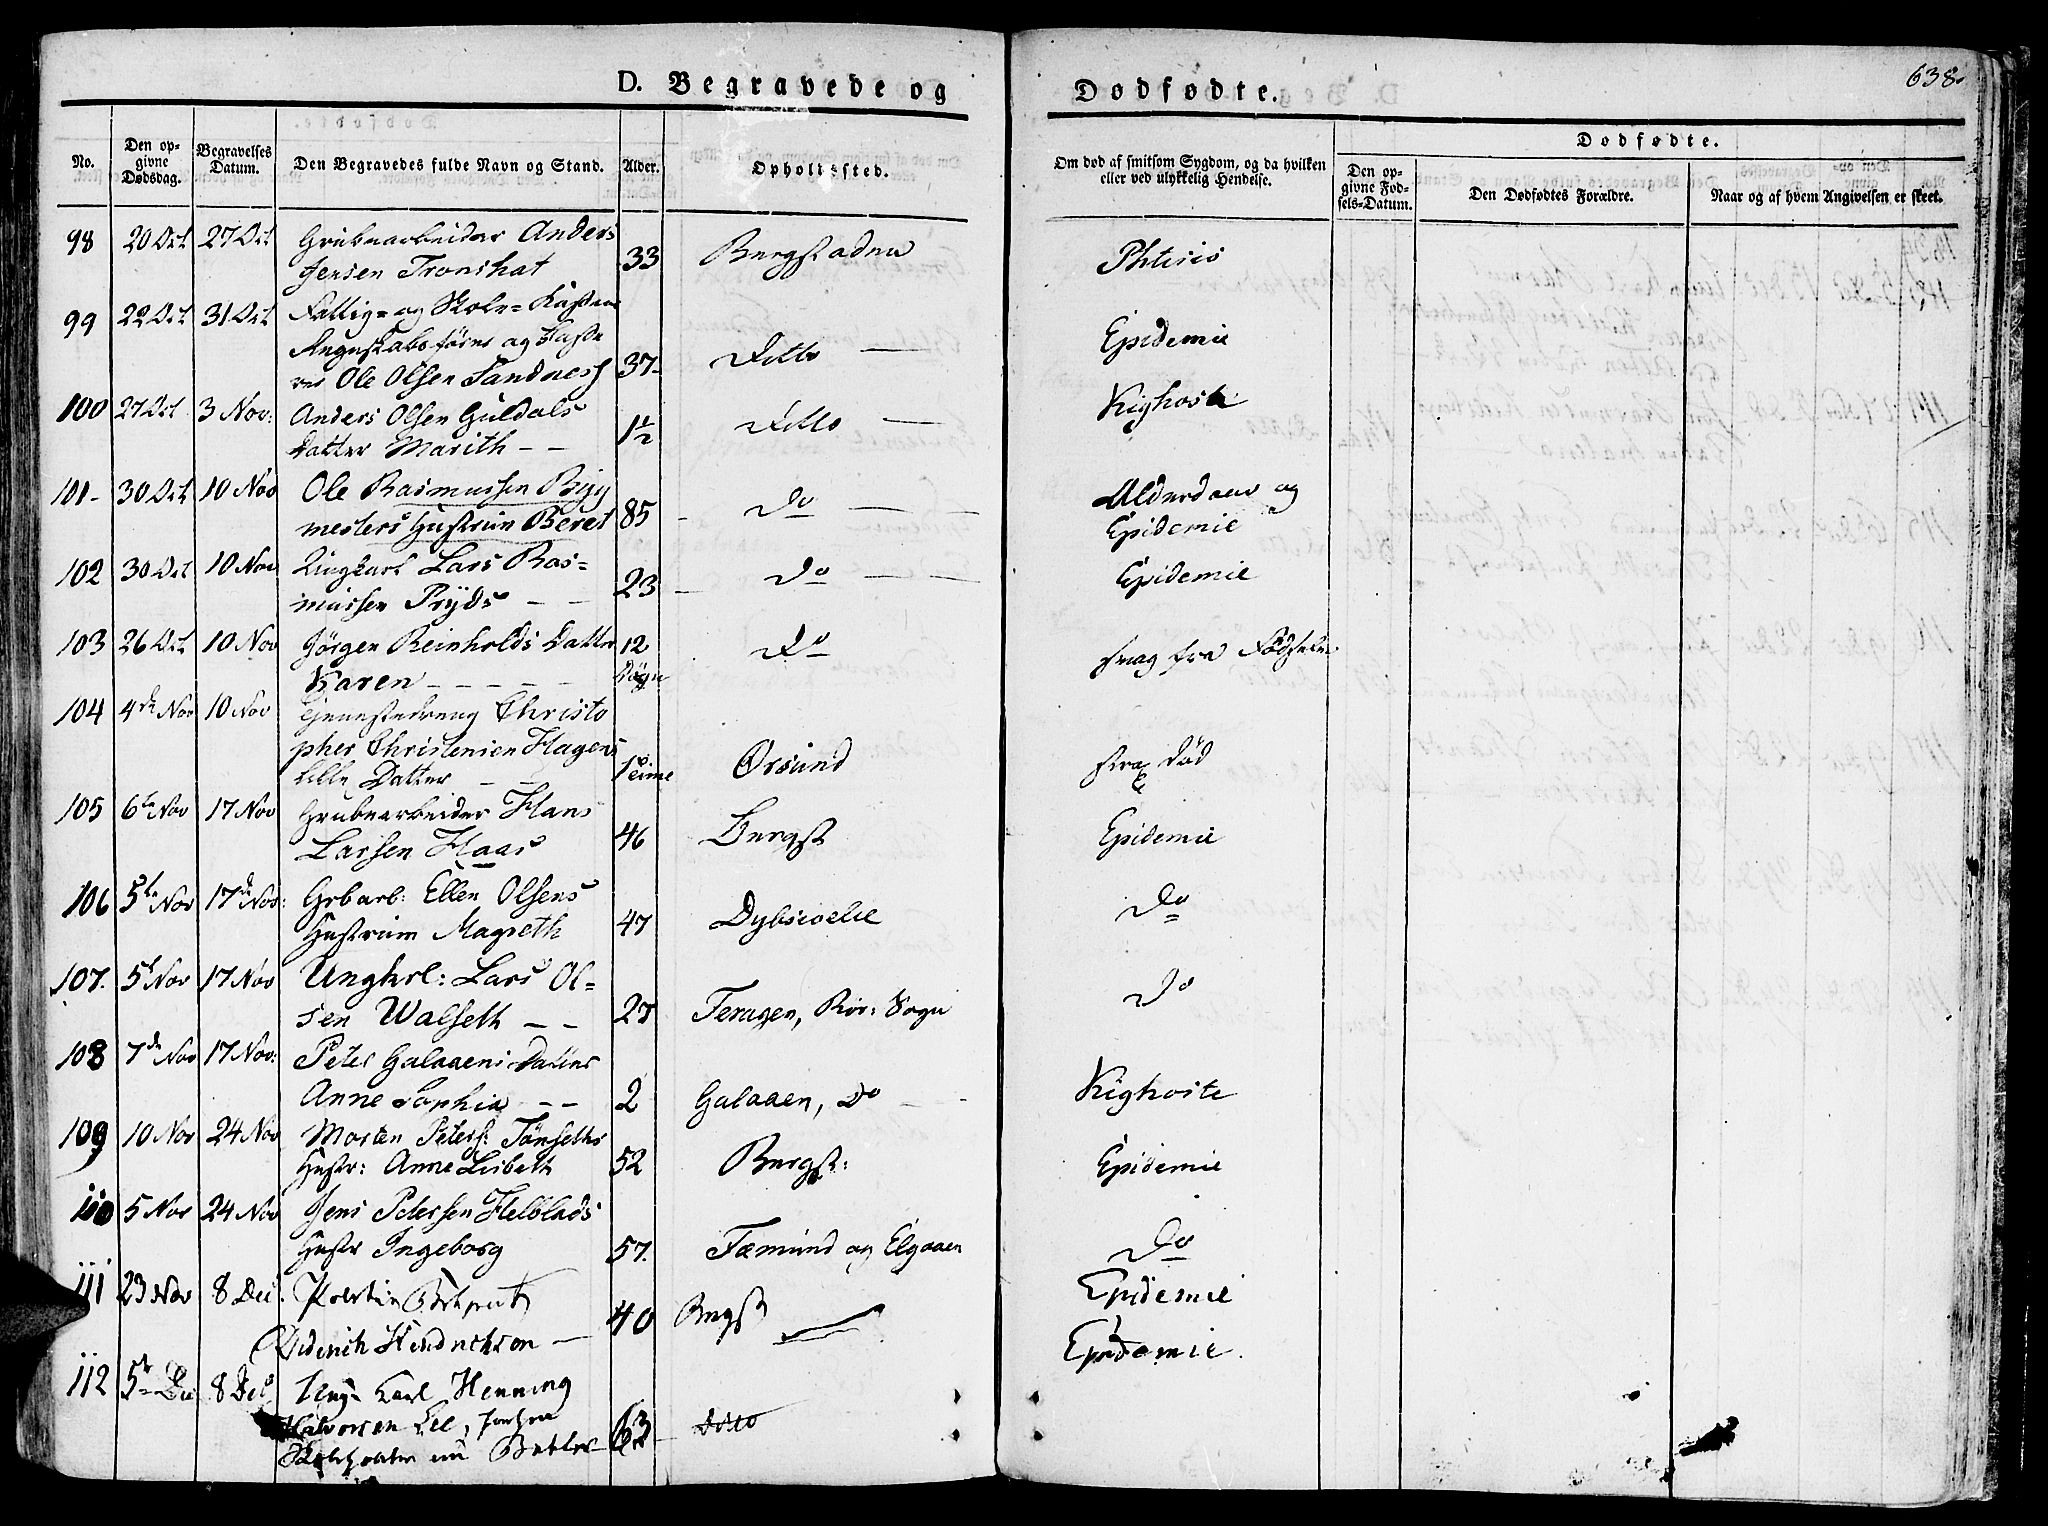 638.
D. Begravede og Dødfødte.
No.
Den op-
givne
Dødsdag.
Begravelses
Datum.
Den Begravedes fulde Navn og Stand.
Alder.
Opholdssted.
Om død af smitsom Sygdom, og da hvilken
eller ved ulykkelig Hendelse.
Dødfødte.
Den op-
givne Fød-
sels-Datum.
Den Dødfødtes Forældre.
Naar og af hvem Angivelsen er skeet.
98 20 Oct 27 Oct Grubearbeider Anders
Jensen Tronshat 33 Bergstaden Phtisis
99 22 Oct 31 Oct Fattig- og Skole-Kassens
Regnskabsfører og Kasse
rer Ole Olsen Sandness 37 Ditto — Epidemie
100 27 Oct 3 Nov: Anders Olsen Guldals
Datter Marith – – 1½ Ditto — Kighoste
101- 30 Oct 10 Nov Ole Rasmussen Byg
mesters Hustrue Beret 85 Do — — Alderdom og
Epidemie
102 30 Oct 10 Nov Ungkarl Lars Ras=
mussen Pryds – – 23 Do — — Epidemie
103 26 Oct 10 Nov Jørgen Reinholds Datter
Karen – – – – – 12
Døgn Do svag fra Fødselen
104 4de Nov 10 Nov Tjenestedreng Christo
pher Christensen Hagens
lille Datter – – 1 Time Orsund strax død
105 6te Nov 17 Nov Grubearbeider Hans
Larsen Haas 46 Bergst Epidemie
106 5te Nov 17de Nov: Grbarb: Ellen Olsens
Hustrue Magreth 47 Dybsioelie Do
107. 5t Nov 17 Nov Ungkrl: Lars Ol=
sen Walseth – – 27 Feragen, Rør: Sogn Do
108 7de Nov 17 Nov: Peter Galaaens Datter
Anne Sophia – – 2 Galaaen, Do — Kighoste
109 10 Nov 24 Nov Morten Peters: Tønseths
Hustr: Anne Lisbeth 52 Bergst: Epidemie
110 5 Nov 24 Nov Jens Petersen Helblads
Hustr Ingeborg 57. Fæmund og Elgaaen Do
111 23 Nov 8 Dec.
Diderich Hendrichson — 40 Bergst Epidemie
Epidemie.
112 5te Dec 8 Dec Ung- Karl Henning
Halvorsen Lee, 63 Ditto